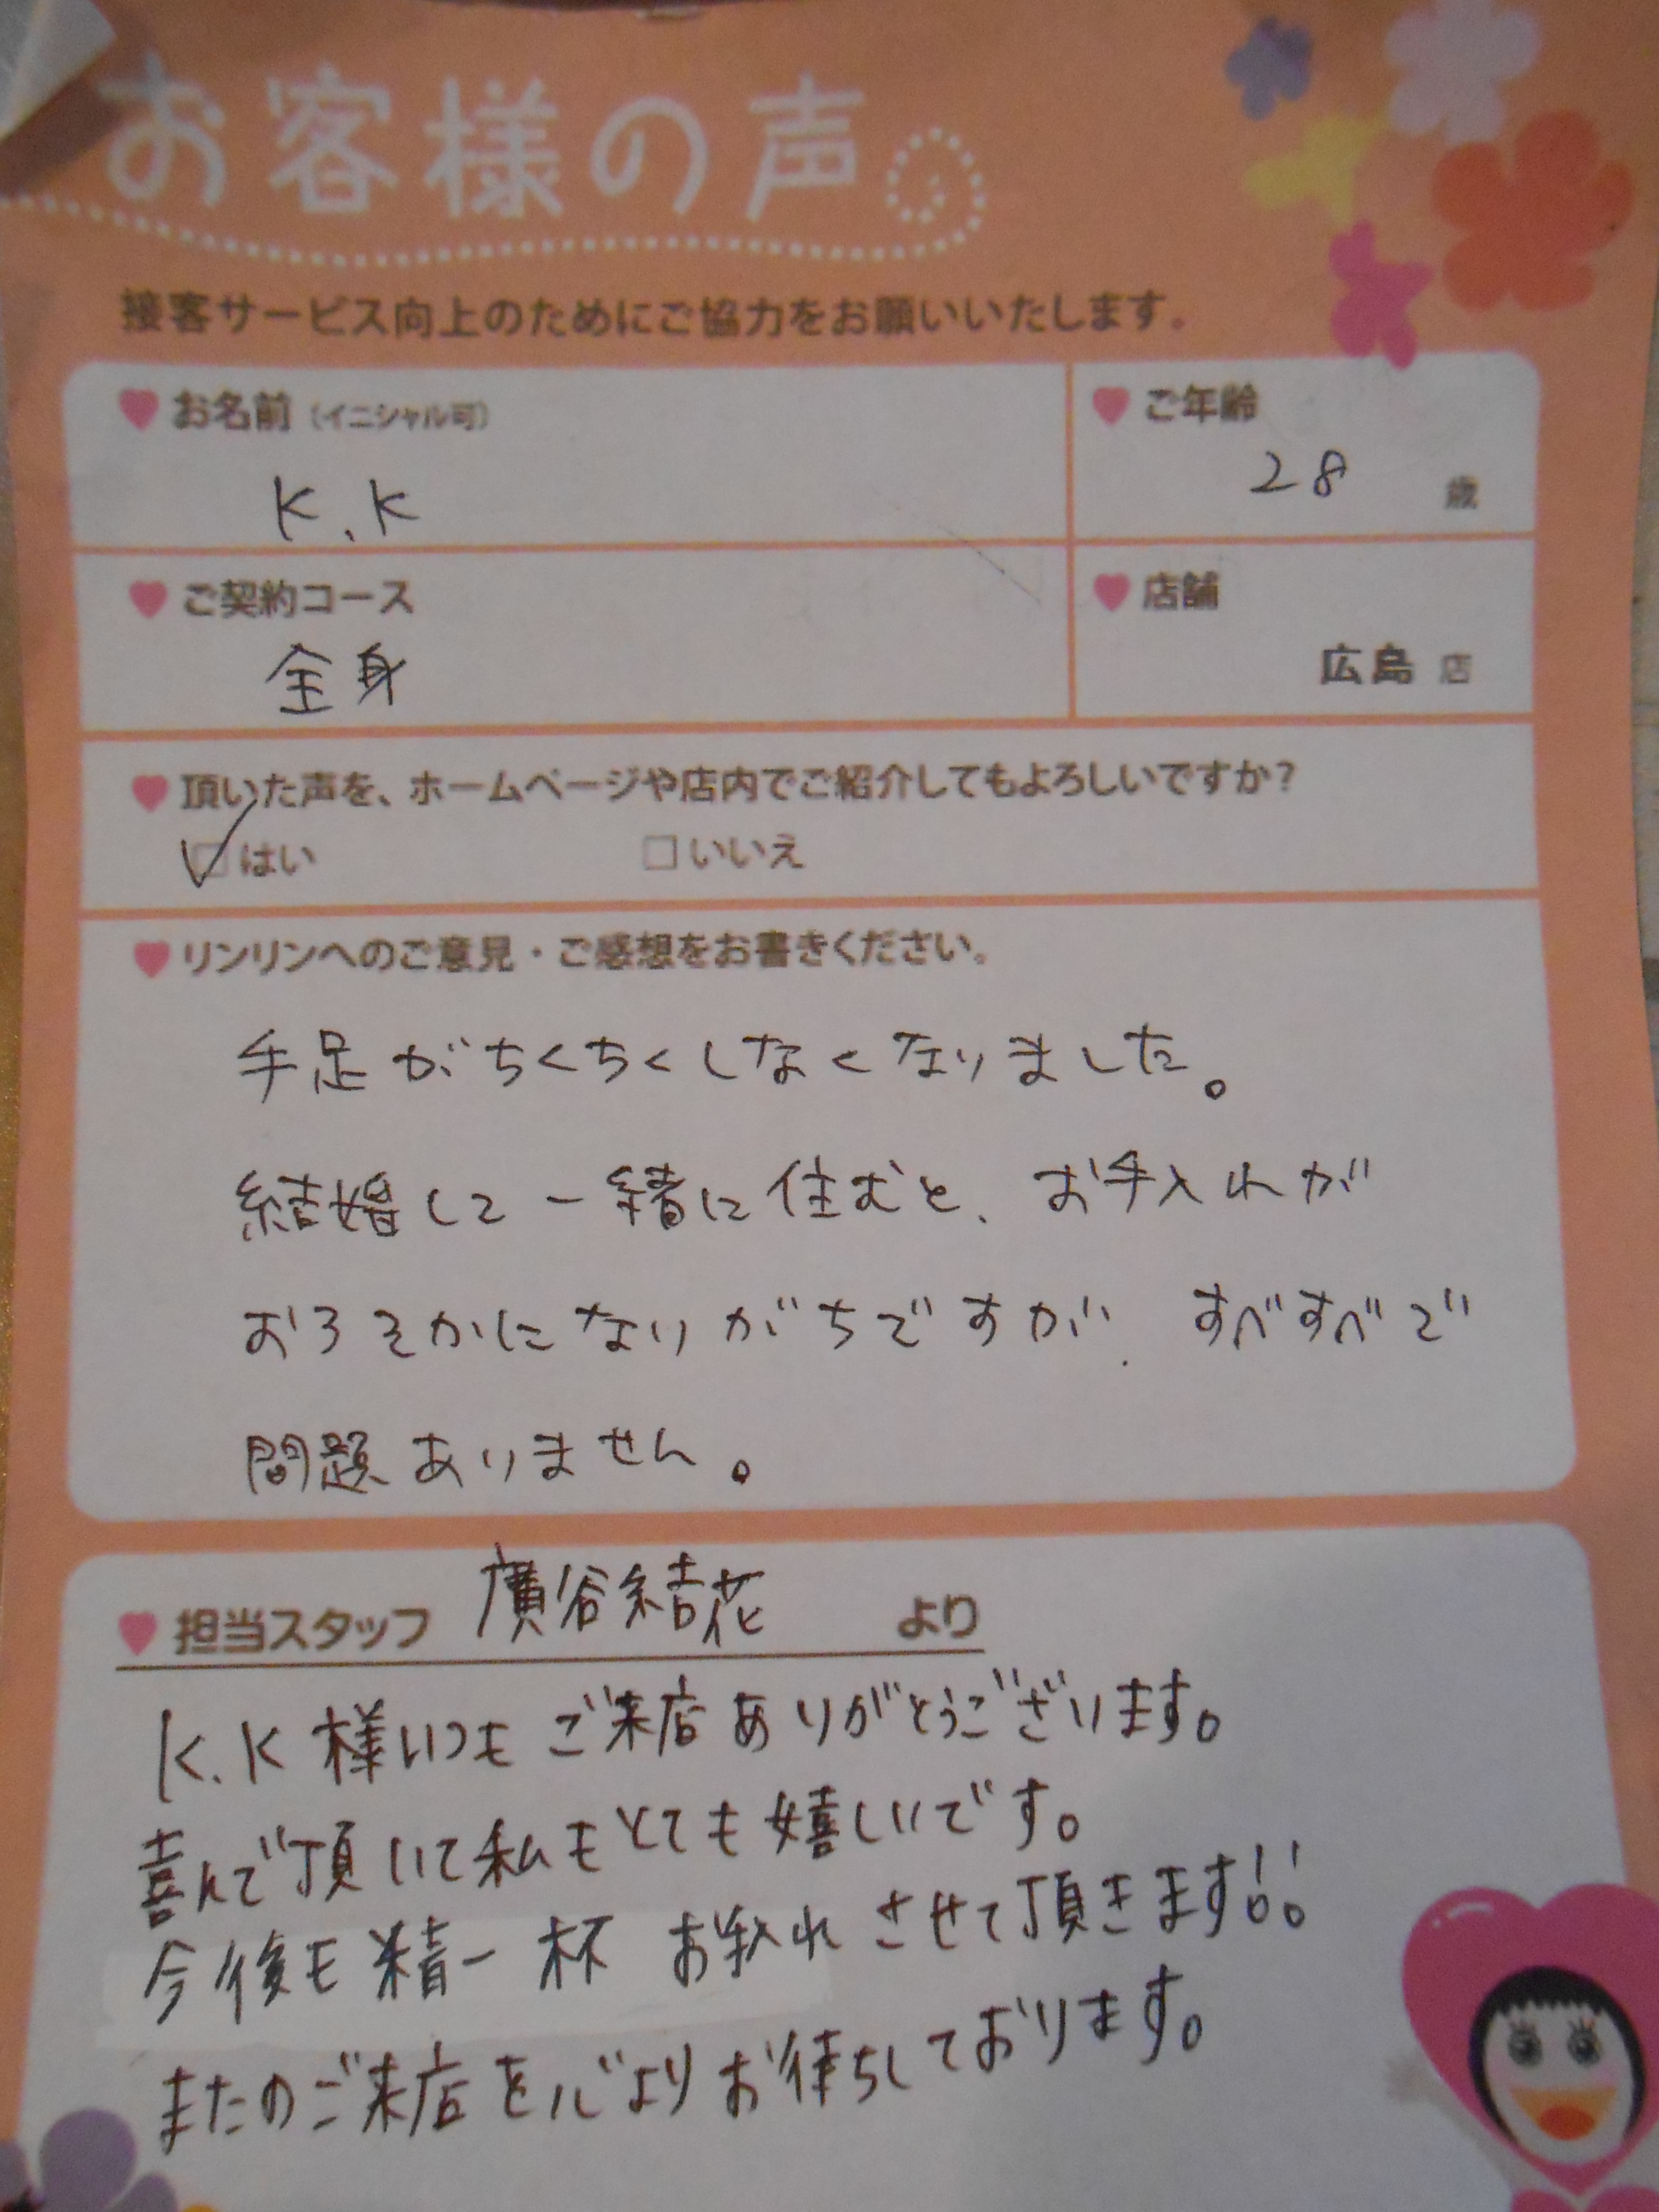 お客様の声
接客サービス向上のためにご協力をお願いいたします。
お名前（イニシャル可）
K.K
ご年齢
28 歳
ご契約コース
全身
店舗
広島 店
頂いた声を、ホームページや店内でご紹介してもよろしいですか？
はい いいえ
リンリンへのご意見・ご感想をお書きください。
手足がちくちくしなくなりました。
結婚して一緒に住むと、お手入れが
おろそかになりがちですが、すべすべで
問題ありません。
担当スタッフ 廣谷結花 より
K.K様いつもご来店ありがとうございます。
喜んで頂いて私もとても嬉しいです。
今後も精一杯お手入れさせて頂きます!!
またのご来店を心よりお待ちしております。